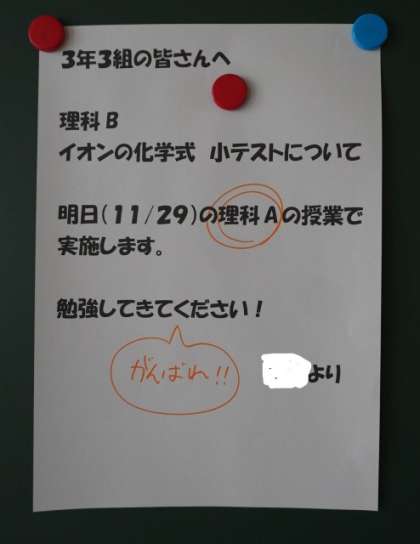 3年3組の皆さんへ
理科B
イオンの化学式 小テストについて
明日(11/29)の理科Aの授業で
実施します。
勉強してきてください!
がんばれ!!
より